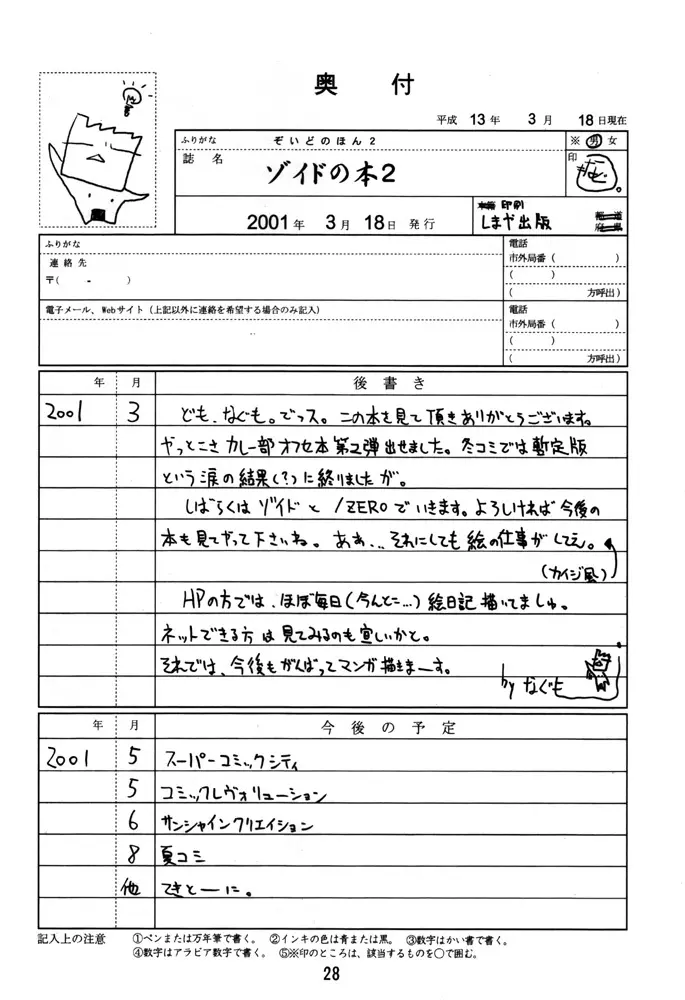 奥付
平成 13年 3月 18日現在
ふりがな ぞいどのほん2
※ 男 女
誌名 ゾイドの本2
印
2001年 3月 18日 発行
印刷
しまや出版
ふりがな
連絡先
〒( - )
電話
市外局番 ( )
( )
( 方呼出)
電子メール、Webサイト (上記以外に連絡を希望する場合のみ記入)
電話
市外局番 ( )
( )
( 方呼出)
年 月 後書き
2001 3 ども、なぐも。でっス。この本を見て頂きありがとうございます。
やっとこさカレー部オフセ本第2弾出せました。冬コミでは暫定版
という涙の結果(?)に終りましたが。
しばらくはゾイドと/ZEROでいきます。よろしければ今後の
本も見てやって下さいね。ああ...それにしても絵の仕事がしてえ。
(カイジ風)
HPの方では、ほぼ毎日(今んとこ...)絵日記描いてましゅ。
ネットできる方は見てみるのも宜いかと。
それでは、今後もがんばってマンガ描きまーす。
by なぐも
年 月 今後の予定
2001 5 スーパーコミックシティ
5 コミックレヴォリューション
6 サンシャインクリエイション
8 夏コミ
他 てきとーに。
記入上の注意 ①ペンまたは万年筆で書く。 ②インキの色は青または黒。 ③数字はかい書で書く。
④数字はアラビア数字で書く。 ⑤※印のところは、該当するものを○で囲む。
28